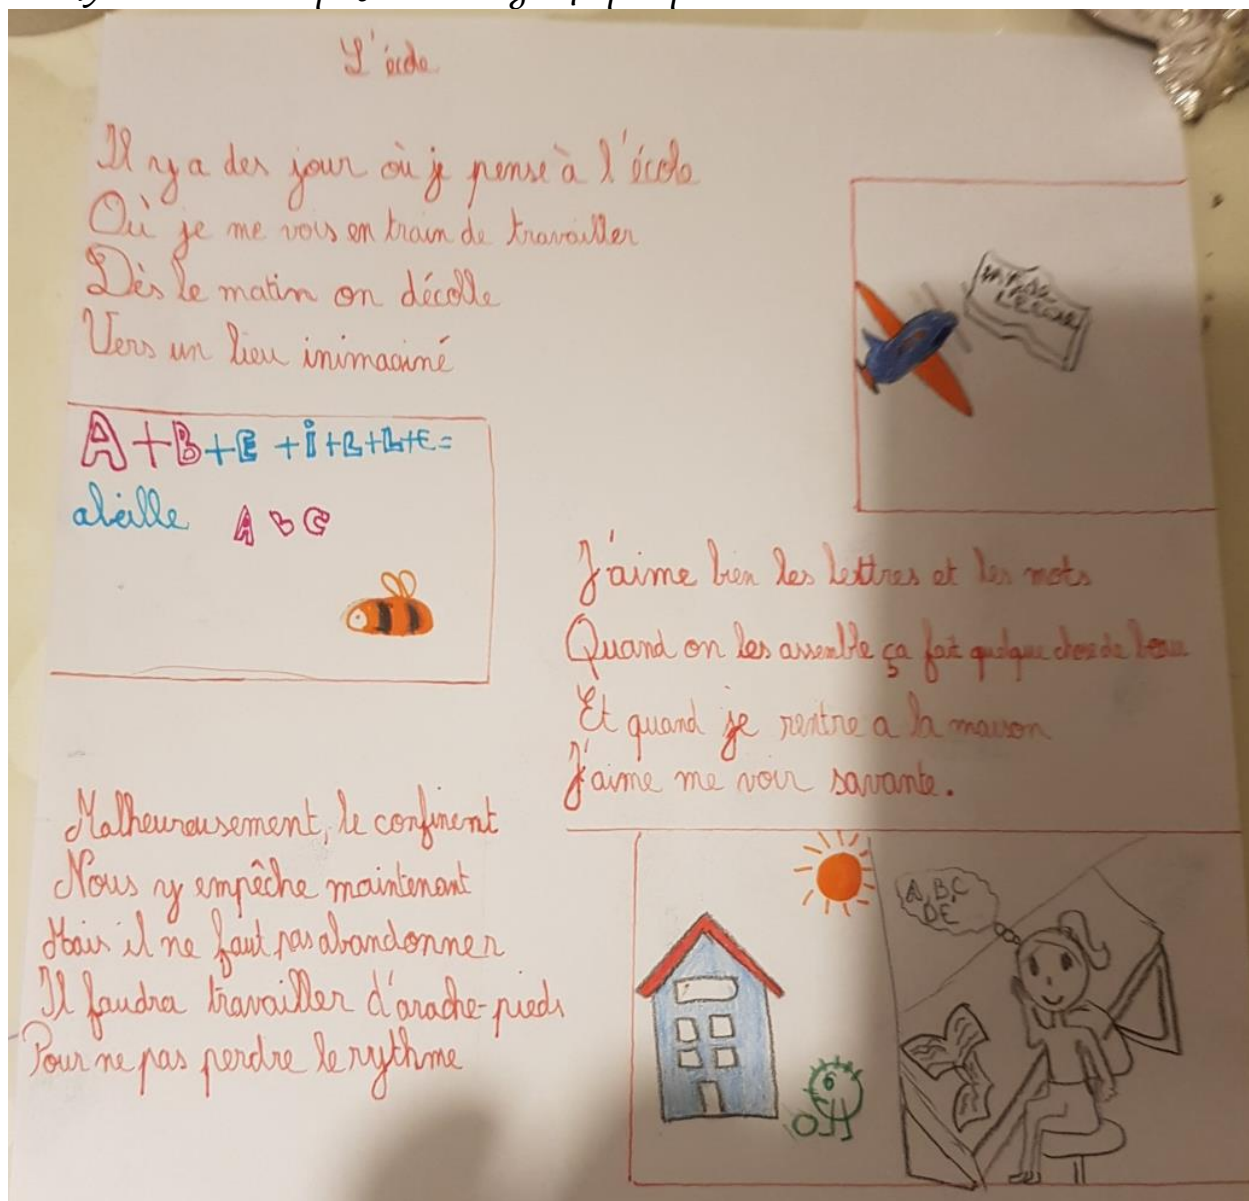 L'école
Il y a des jour où je pense à l'école
Où je me vois en train de travailler
Dès le matin on décolle
Vers un lieu inimaginé
A+B+E+i+L+L+E=
abeille ABC
J'aime bien les lettres et les mots
Quand on les assemble ça fait quelque chose de beau
Et quand je rentre a la maison
J'aime me voir savante.
Malheureusement, le confinent
Nous y empêche maintenant
Mais il ne faut pas abandonner
Il faudra travailler d'arache-pieds
Pour ne pas perdre le rythme
A,B,C
DE